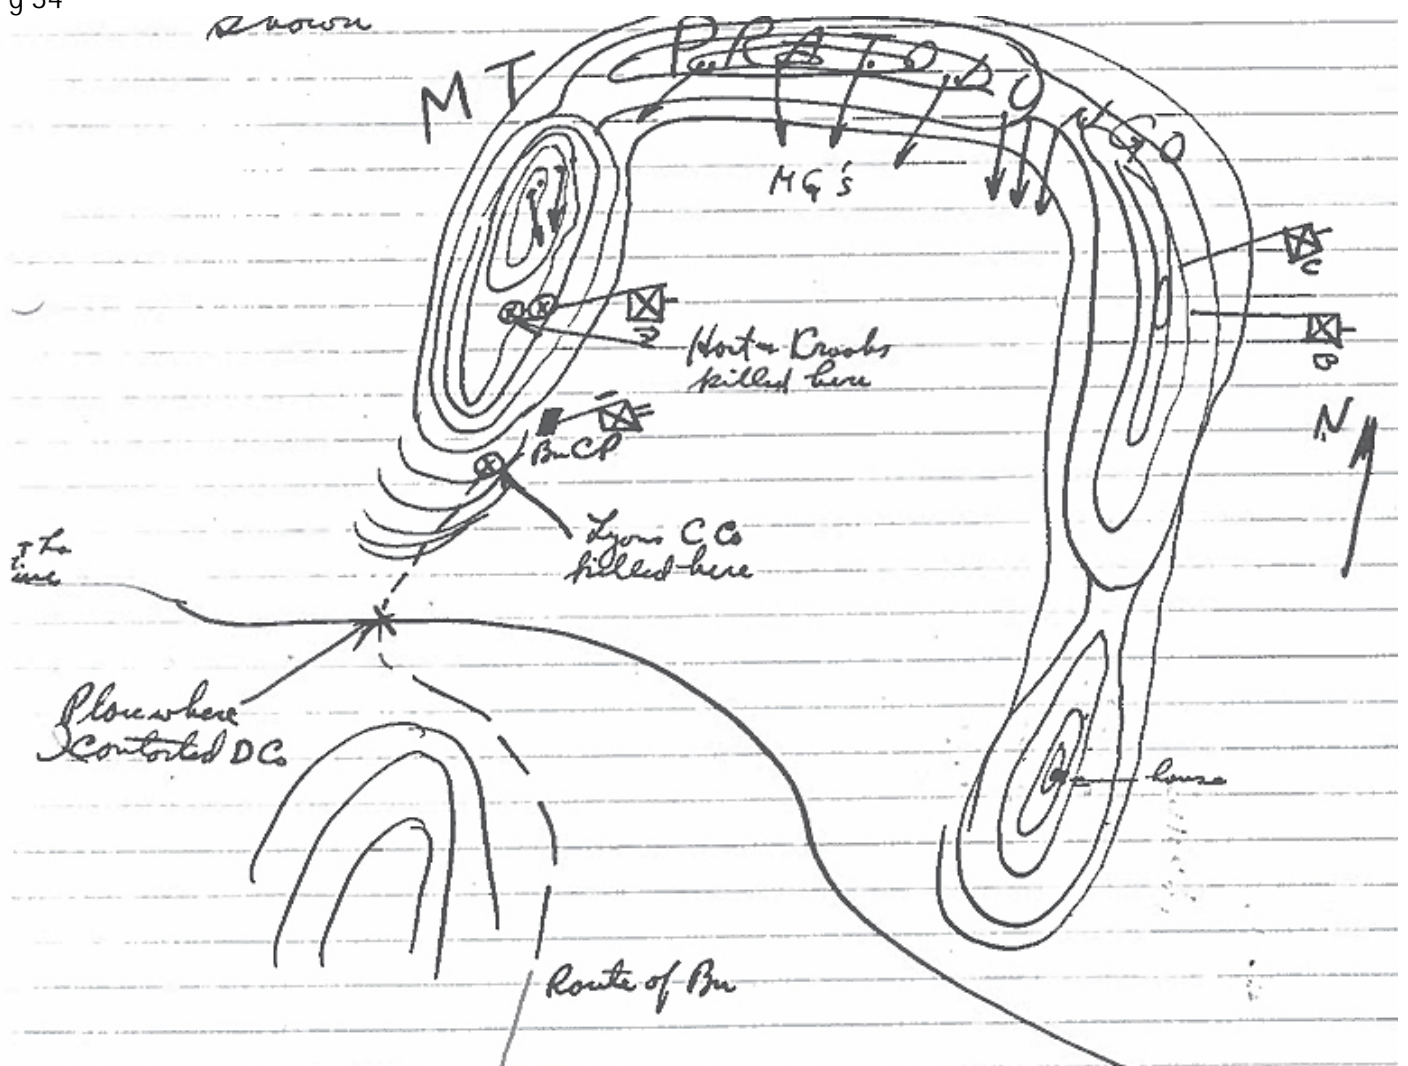 g 54
shown
MT PRATO DO
NGO
MG's
C
B
Hort & Krooks
killed here
N
Bn CP
Lyons C Co
killed here
Place where
I contacted D Co
house
Route of Bn